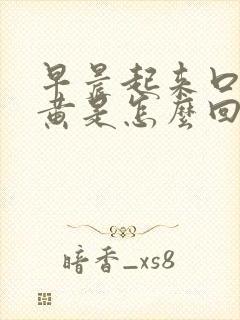 早晨起来口
黄是怎麼回
暗香_xs8